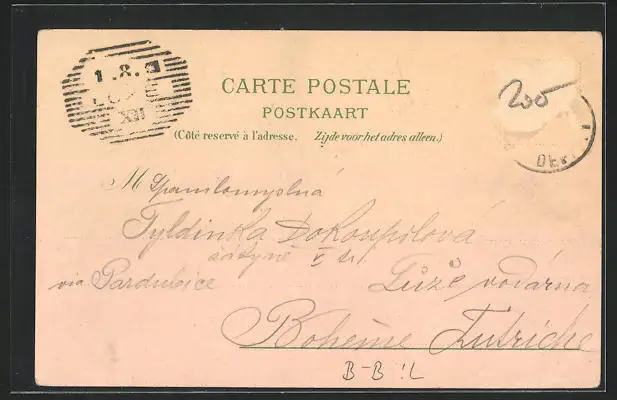 1.8.
XII
CARTE POSTALE
POSTKAART
(Côté reservé à l'adresse. Zijde voor het adres alleen.)
200
DE
M Spanilomyslná
Tyldinka Dokoupilová
via Pardubice
Luže vodárna
Bohème Autriche
B-B !L